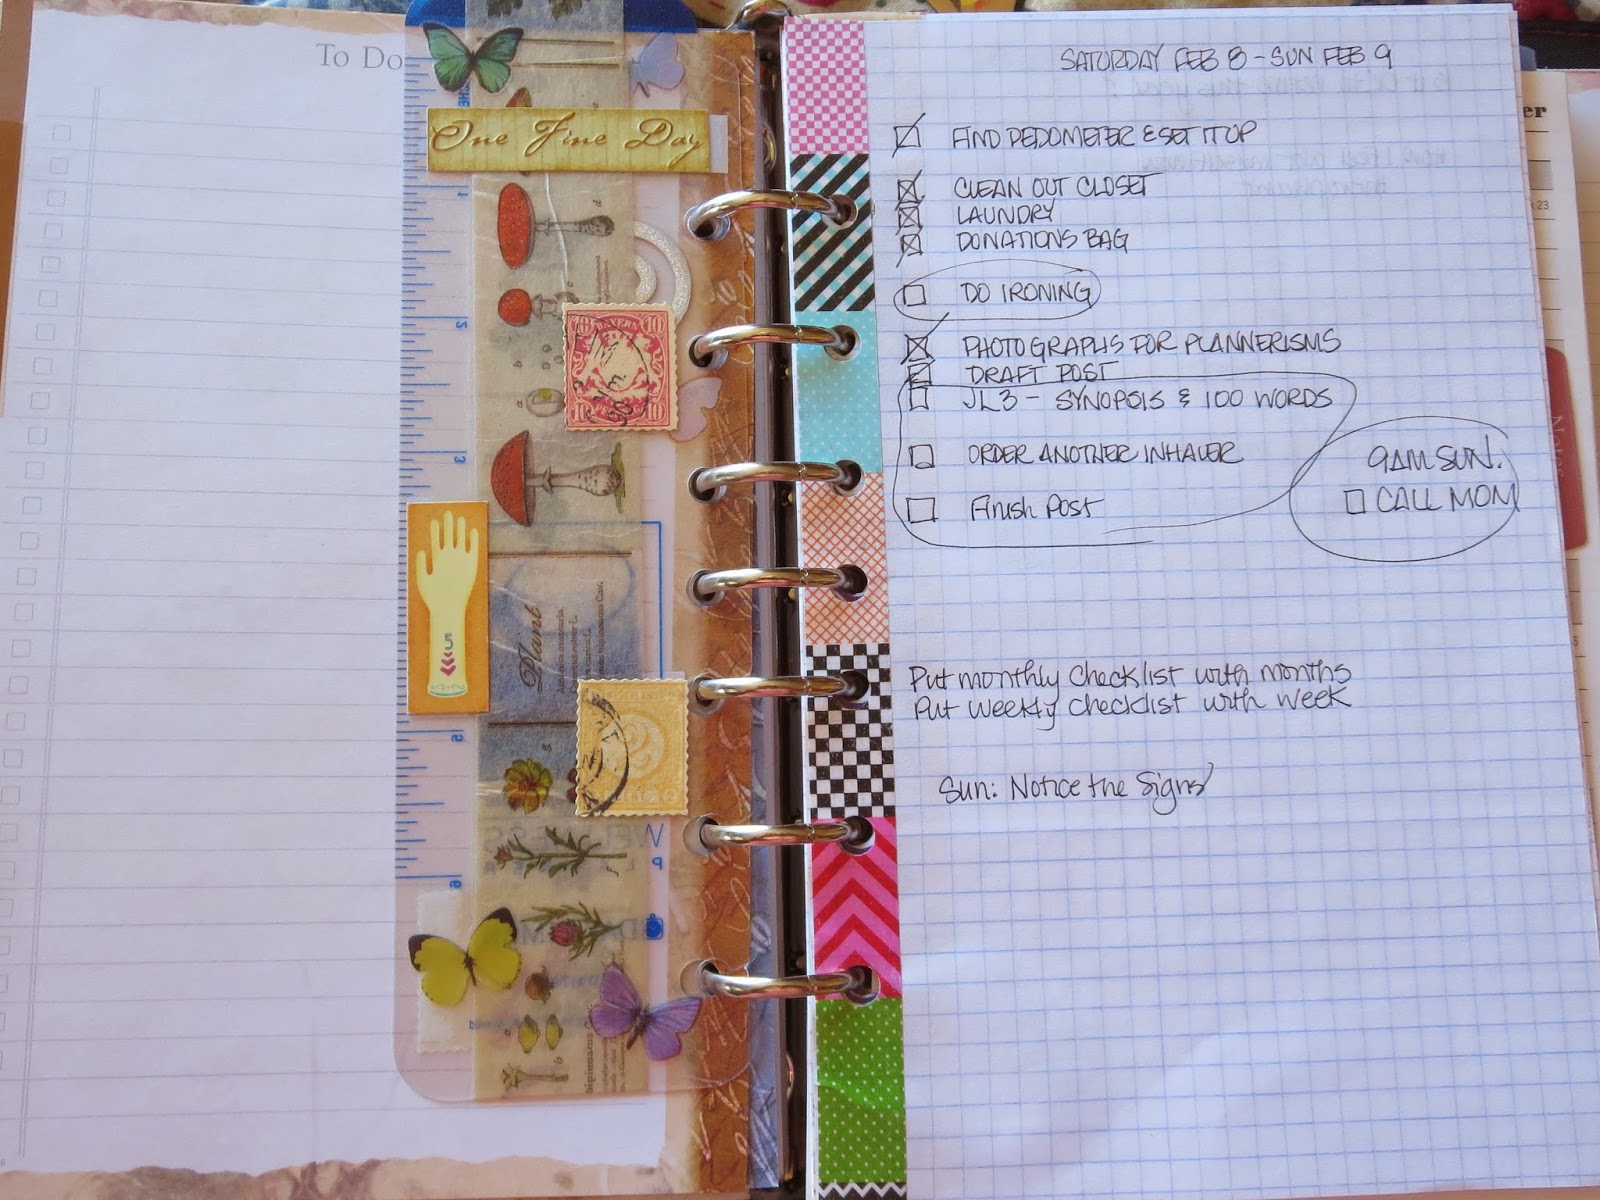 To Do
One Fine Day
BAYERN
10 10
10 10
Plant
2
3
5
6
SATURDAY FEB 8 - SUN FEB 9
FIND PEDOMETER & SET IT UP
CLEAN OUT CLOSET
LAUNDRY
DONATIONS BAG
DO IRONING
PHOTOGRAPHS FOR PLANNERISMS
DRAFT POST
JL3 - SYNOPSIS & 100 WORDS
ORDER ANOTHER INHALER
9AM SUN.
CALL MOM
Finish Post
Put monthly checklist with months
Put weekly checklist with week
Sun: Notice the Signs
er
23
Notes